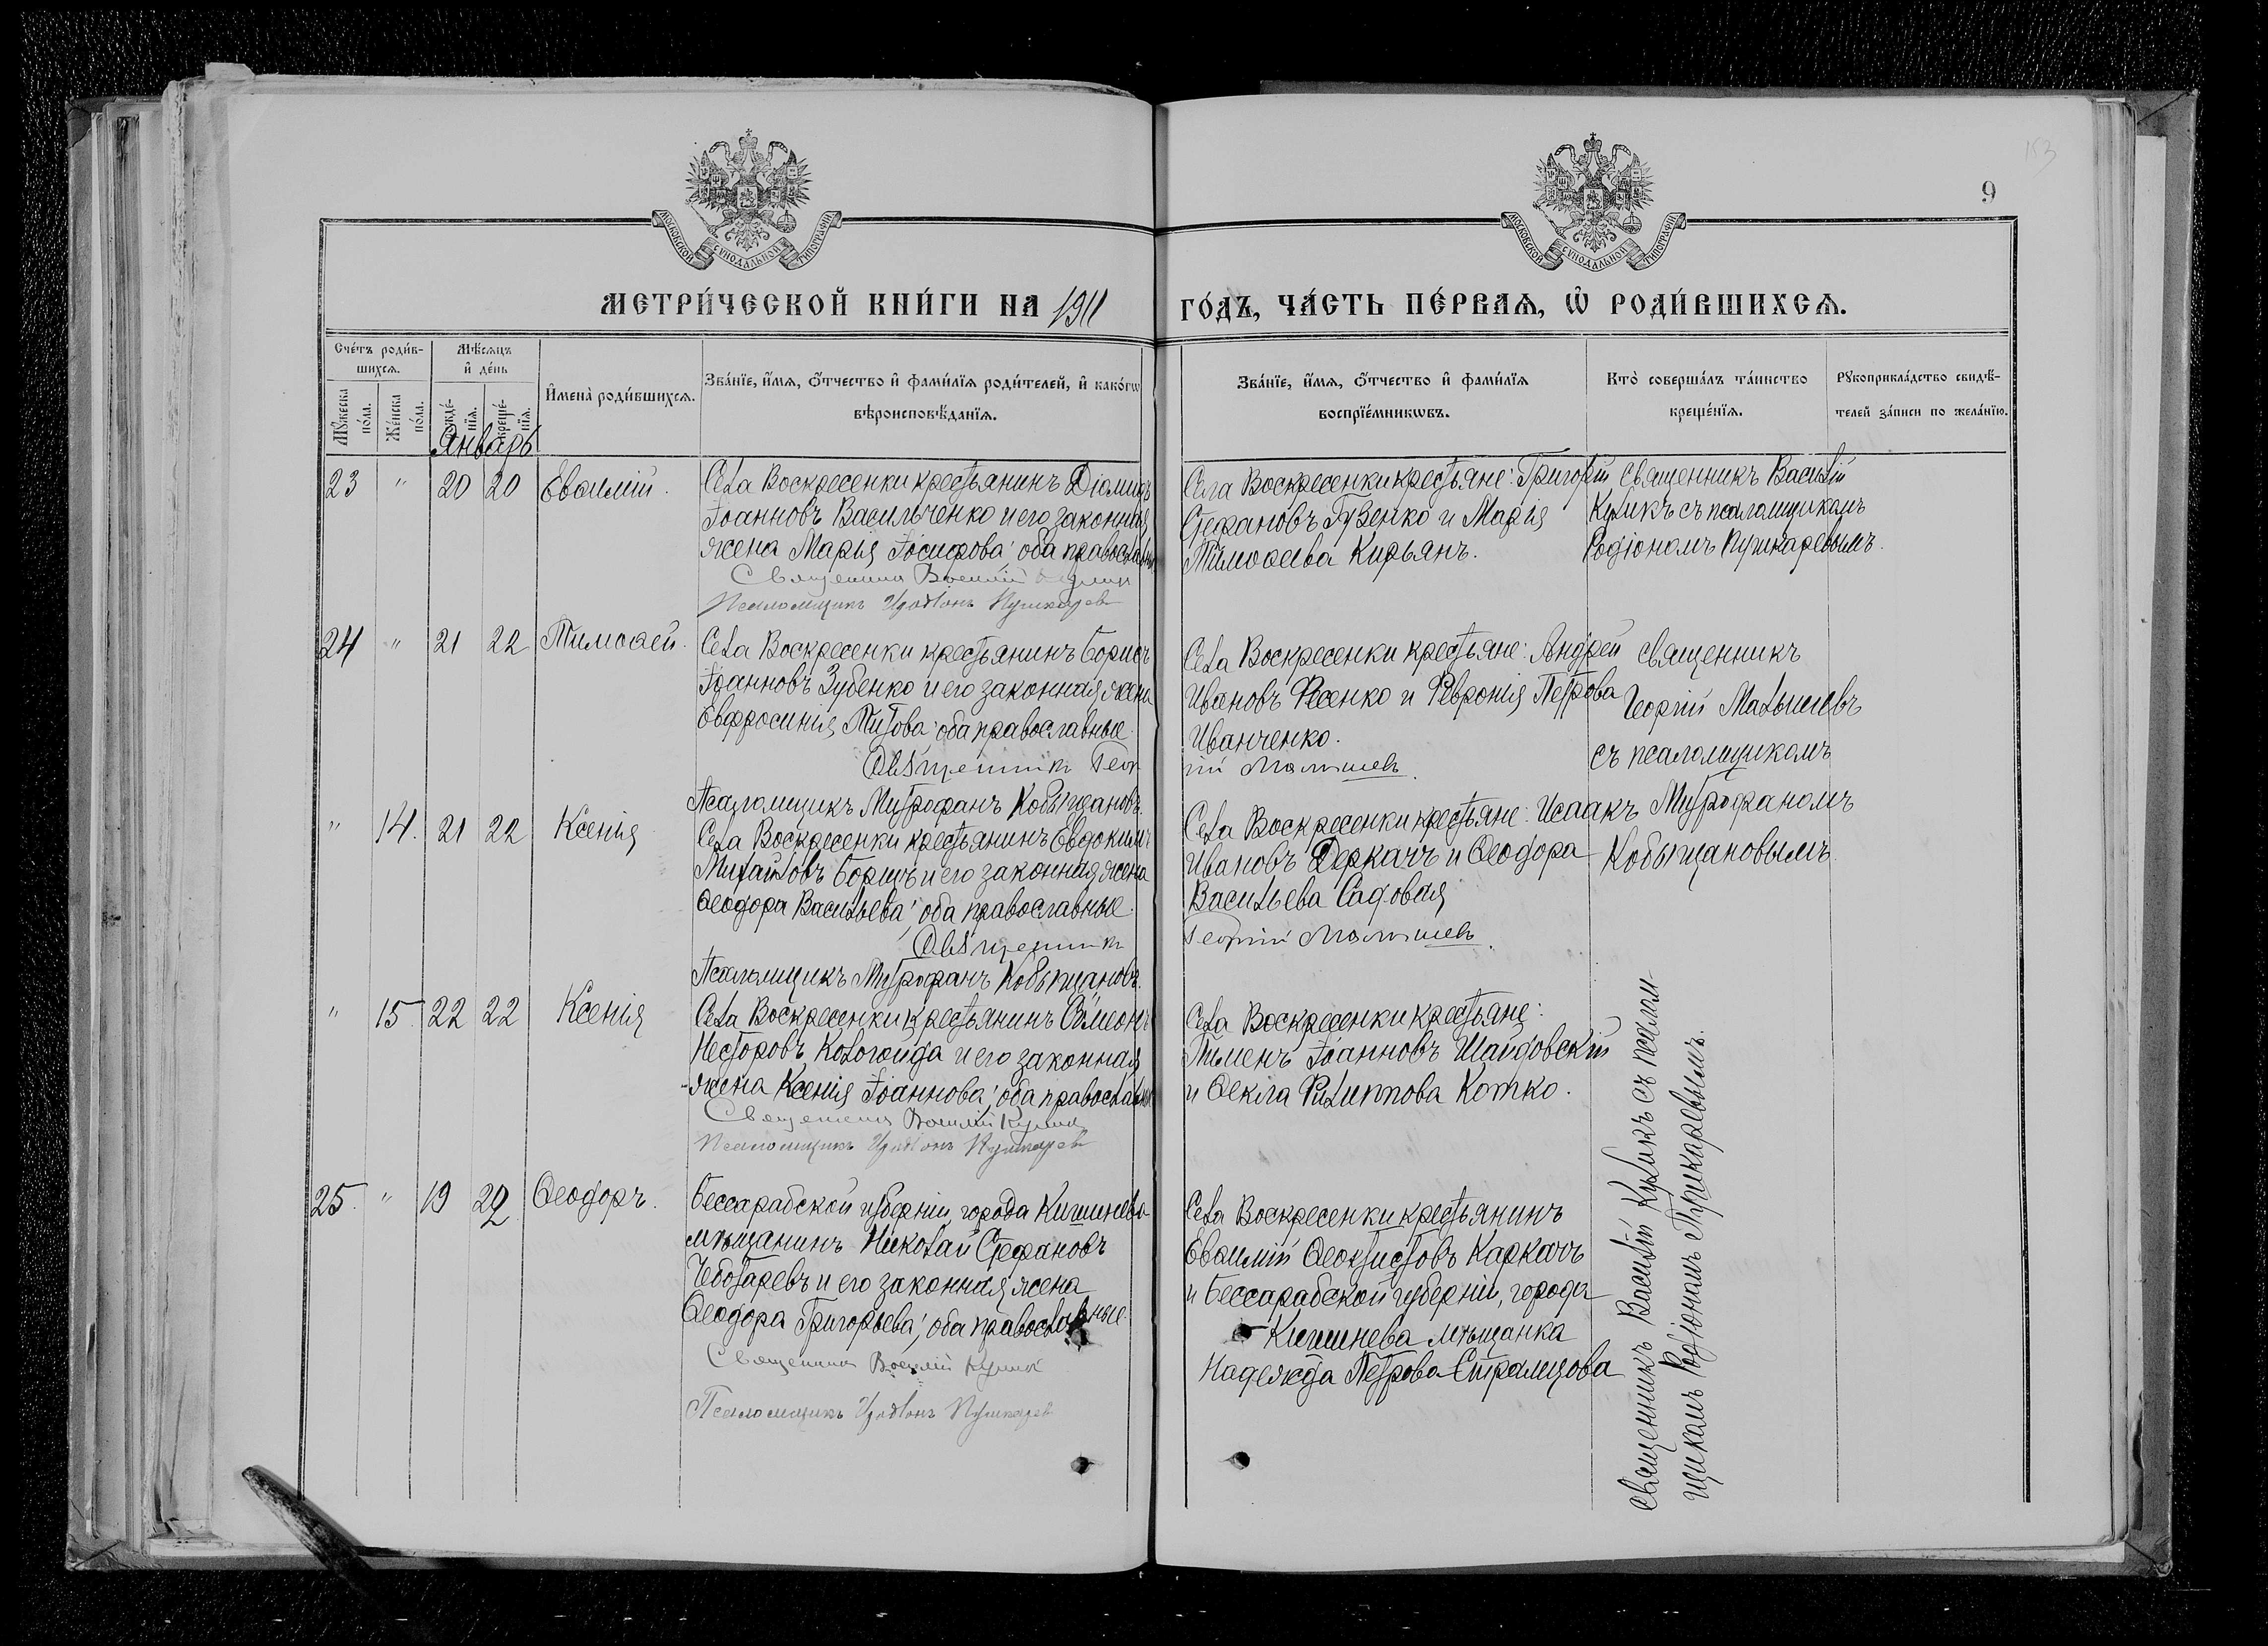 153
9
МОСКОВСКОЙ СѴНОДАЛЬНОЙ ТИПОГРАФІИ
МОСКОВСКОЙ СѴНОДАЛЬНОЙ ТИПОГРАФІИ
МЕТРИ́ЧЕСКОЙ КНИ́ГИ НА 1911 ГО́ДЪ, ЧА́СТЬ ПЕ́РВАѦ, Ѡ҆ РОДИ́ВШИХСѦ.
Сче́тъ роди́в-
шихсѧ.
Мꙋ́жеска по́ла.
Же́нска по́ла.
Мѣ́сѧцъ
и҆ де́нь
рожде́-нїѧ.
креще́-нїѧ.
И҆мена̀ роди́вшихсѧ.
Зва́нїе, и҆́мѧ, ѻ҆́тчество и҆ фами́лїѧ роди́телей, и҆ како́гѡ
вѣроисповѣ́данїѧ.
Зва́нїе, и҆́мѧ, ѻ҆́тчество и҆ фами́лїѧ
воспрїе́мникѡвъ.
Кто̀ соверша́лъ та́инство
креще́нїѧ.
Рꙋкоприкла́дство свидѣ́-
телей за́писи по жела́нїю.
Январь
23 " 20 20 Евѳимій.
Села Воскресенки крестьянинъ Діомидъ
Іоанновъ Васильченко и его законная
жена Марія Іосифова; оба православн
Священникъ Василій Кулик
Псаломщикъ Иродіонъ Пушкарев
Села Воскресенки крестьяне: Григорій
Стефановъ Гузенко и Марія
Тимоѳеева Кирьянъ.
Священникъ Василій
Куликъ съ псаломщикомъ
Родіономъ Пушкаревымъ.
24 " 21 22 Тимоѳей.
Села Воскресенки крестьянинъ Борисъ
Іоанновъ Зубенко и его законная жена
Евфросинія Титова; оба православные.
Священникъ Геор
Псаломщикъ Митрофанъ Кобыщановъ.
Села Воскресенки крестьяне: Андрей
Ивановъ Фесенко и Февронія Петрова
Иванченко.
гій Малышевъ
Священникъ
Георгій Малышевъ
съ псаломщикомъ
Митрофаномъ
Кобыщановымъ.
" 14. 21 22 Ксенія
Села Воскресенки крестьянинъ Евдокимъ
Михайловъ Борщъ и его законная жена
Ѳеодора Васильева; оба православные.
Священникъ
Псаломщикъ Митрофанъ Кобыщановъ.
Села Воскресенки крестьяне: Исаакъ
Ивановъ Деркачъ и Ѳеодора
Васильева Садовая
Георгій Малышевъ.
" 15. 22 22 Ксенія
Села Воскресенки крестьянинъ Симеонъ
Несторовъ Кологойда и его законная
жена Ксенія Іоаннова; оба православн
Священникъ Василій Кулик
Псаломщикъ Иродіонъ Пушкарев
Села Воскресенки крестьяне:
Пименъ Іоанновъ Шайдовскій
и Ѳекла Филиппова Котко.
Священникъ Василій Куликъ съ псалом-
щикомъ Родіономъ Пушкаревымъ.
25. " 19 22. Ѳеодоръ.
Бессарабской губерніи города Кишинева
мѣщанинъ Николай Стефановъ
Чеботаревъ и его законная жена
Ѳеодора Григорьева; оба православные.
Священникъ Василій Кулик
Псаломщикъ Иродіонъ Пушкарев
Села Воскресенки крестьянинъ
Евѳимій Ѳеоктистовъ Каркачъ
и Бессарабской губерніи, города
Кишинева мѣщанка
Надежда Петрова